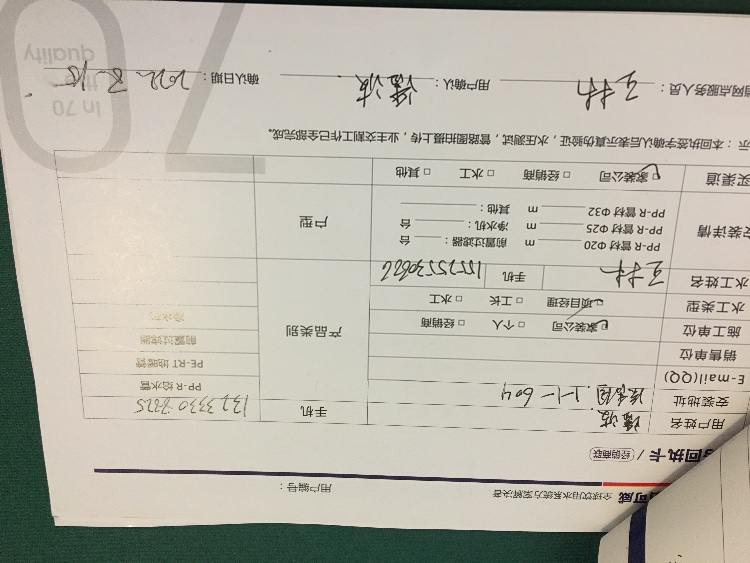 可威 全球饮用水系统方案解决者 用户编号：
回执卡 / 经销商联
用户姓名 手机
安装地址 1-1-604 PP-R 给水管
E-mail(QQ) PE-RT 地暖管
销售单位 前置过滤器
施工单位 家装公司 个人 经销商 产品类别 净水机
水工类型 项目经理 工长 水工
水工姓名 王林 手机 15525530622
安装详情 PP-R 管材 Φ20 m 前置过滤器： 台
PP-R 管材 Φ25 m 净水机： 台 户型
PP-R 管材 Φ32 m 其他：
买渠道 家装公司 经销商 水工 其他
示：本回执签字确认后表示真伪验证，水压测试，管路图拍摄上传，业主交割工作已全部完成。
网点服务人员： 王林 用户确认： 确认日期： 2022.8.15
In 70
quality
70